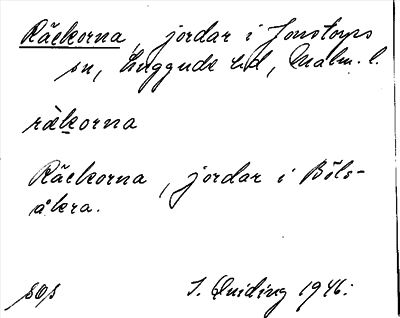 Räekorna, jordar i Jonstorps
sn, Luggude hd, Malm. l.
rækorna
Räekorna, jordar i Böls-
åkra.
sos
I. Quiding 1946.